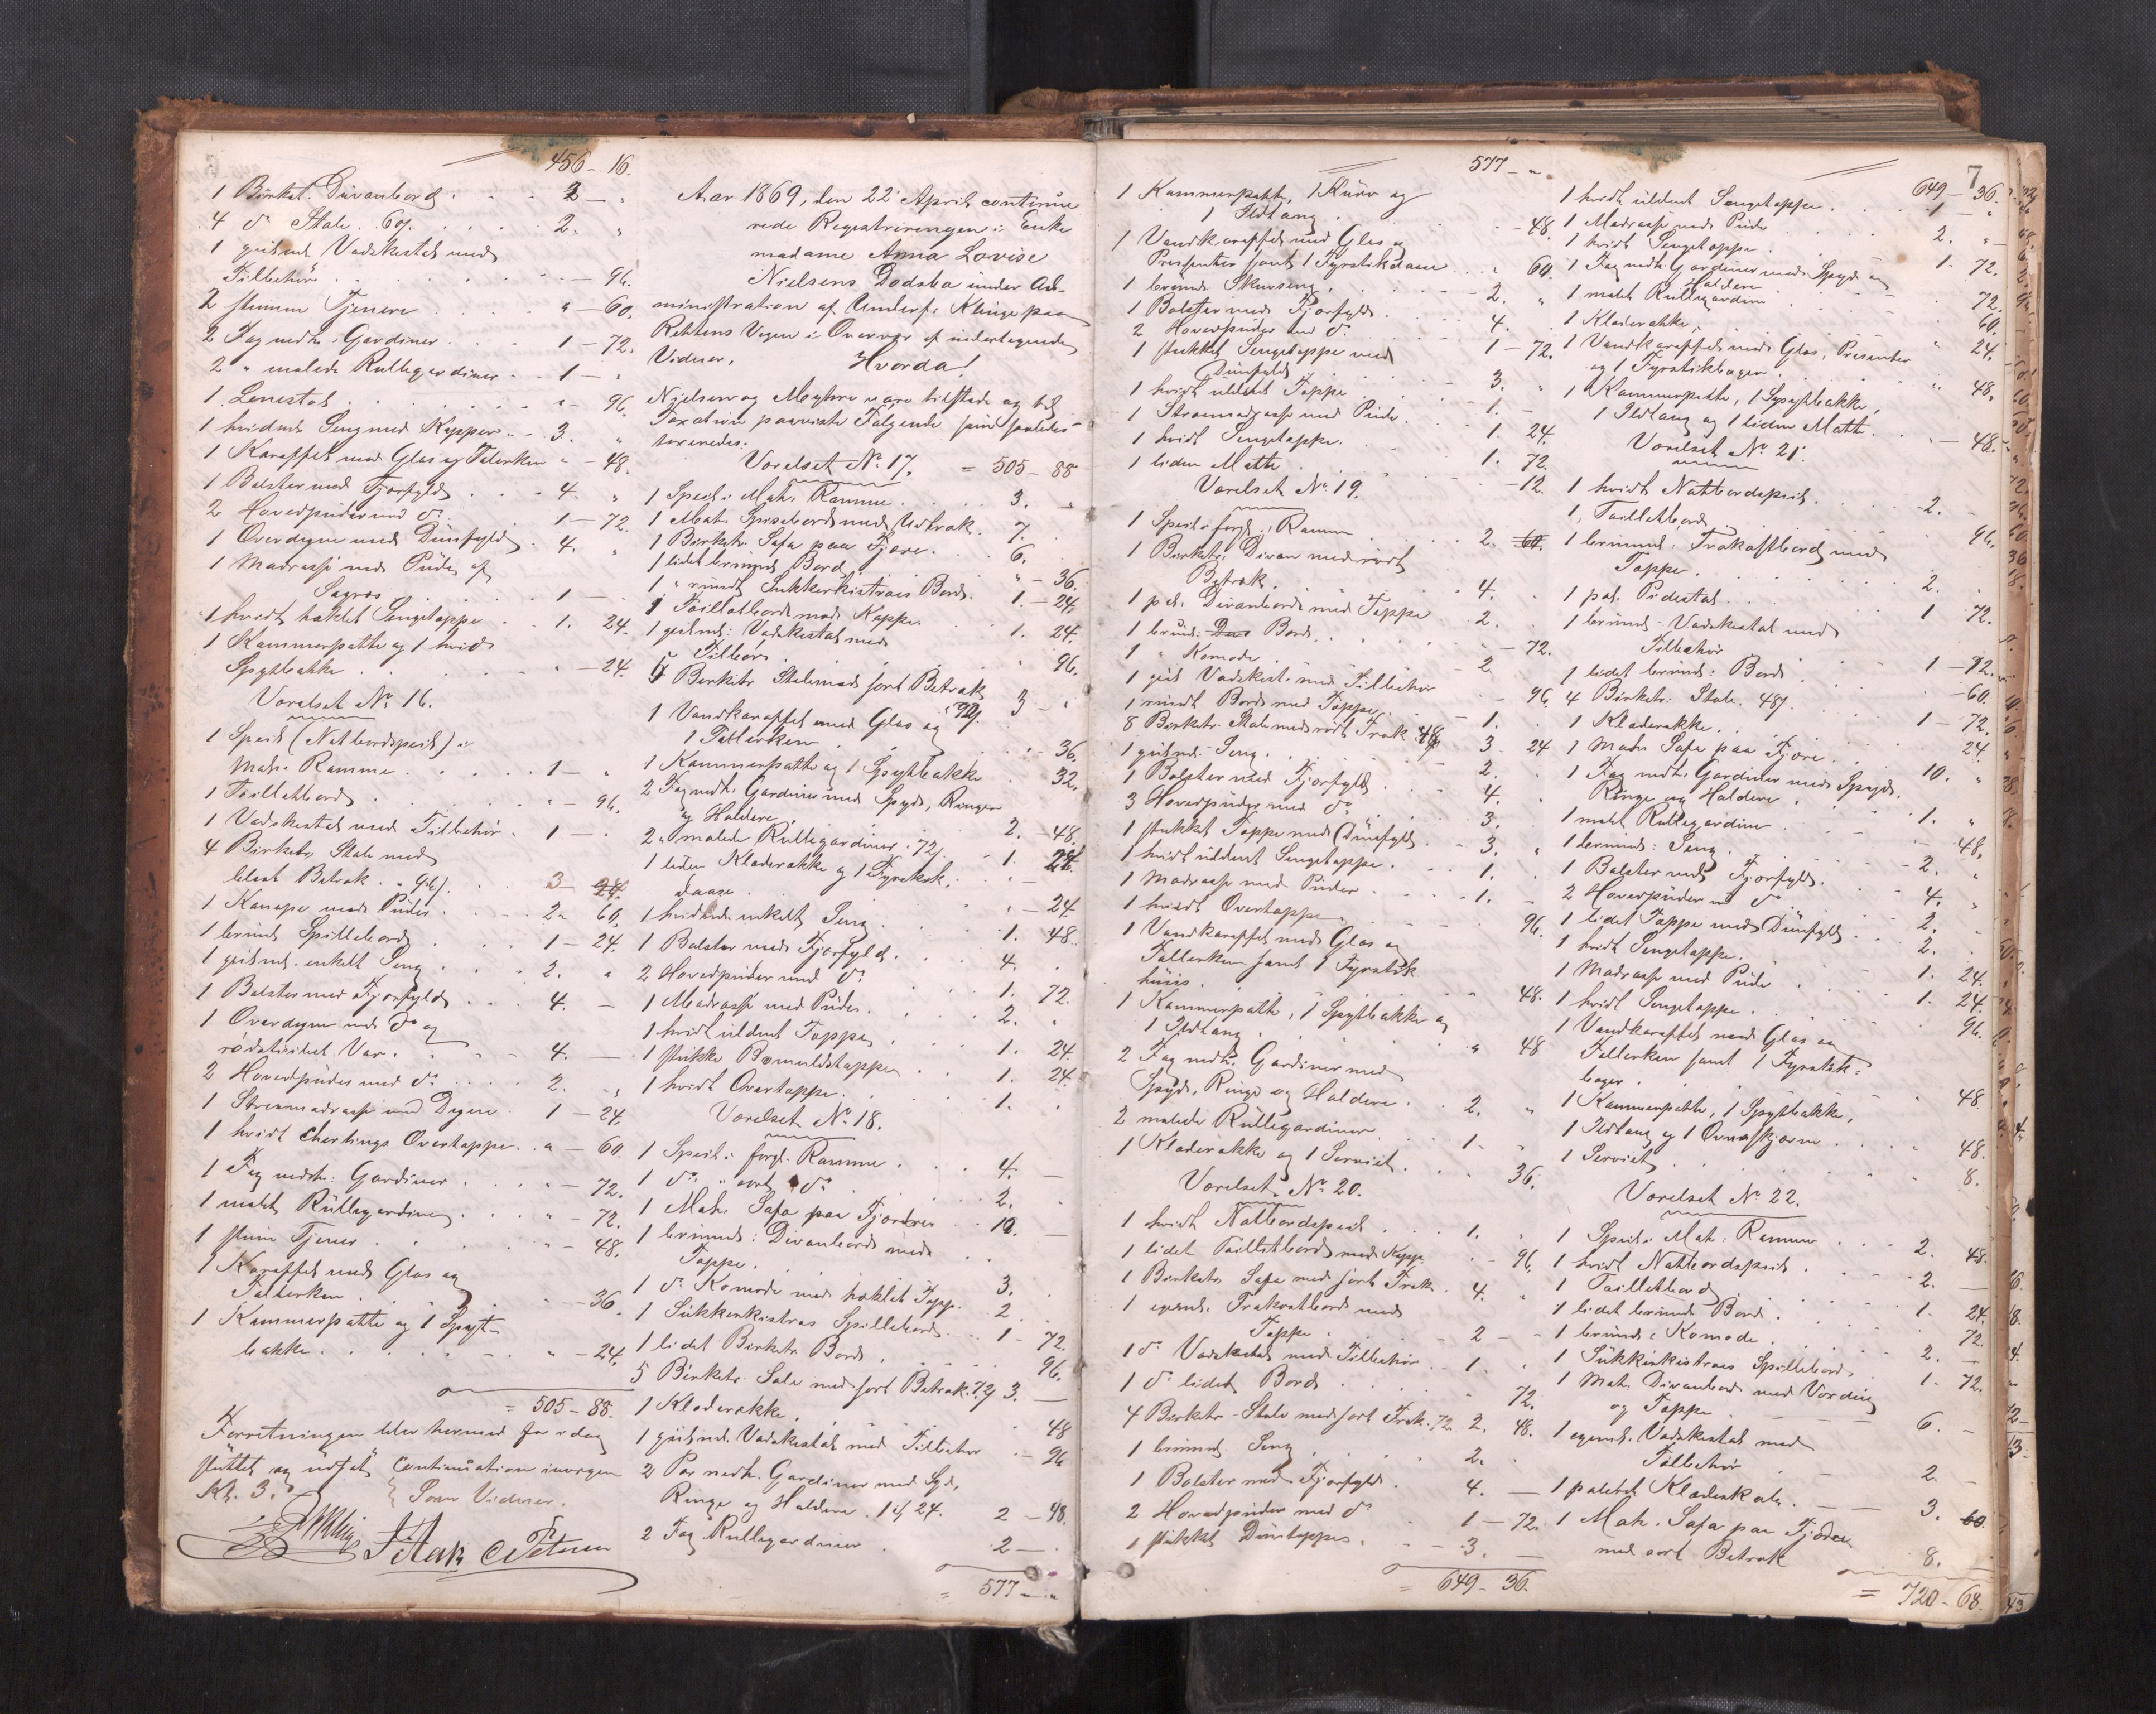 456 - 16.
1 Birket. Divanbord . . . 2 -
4 do Stole . 60/. . . . 2. "
1 guulmal. Vadskestel med
Tilbehör . . . - 96.
2 stumme Tjenere . . . " - 60.
2 Fag nedh. Gardiner . . . 1 - 72.
2 " malede Rullegardiner . . 1 - "
1 Lænestol . . . " - 96.
1 hvidmalt Seng med Kapper . . 3. "
1 Karaffel med Glas og Talerken " - 48.
1 Bolster med Fjærfyld . . . 4. "
2 Hovedpuder med do . . 1 - 72.
1 Overdyne med Duunfyld . 4. "
1 Madrasse med Pude af
Søgræs . . . 1 - "
1 hvidt hæklet Sengetæppe . . 1. 24.
1 Kammerpotte og 1 hvid
Spyttebakke . . . " - 24.
Værelset No 16.
1 Speil (Natbordspeil) i
Mah. Ramme . . . 1 - "
1 Toilletbord . . . " - 96.
1 Vadskestel med Tilbehör . 1 -
4 Birketr. Stole med
blaat Betræk . 96/. . . 3 -
1 Kanape med Puder . . . 2 " 60.
1 bruunt Spillebord . . . 1 - 24.
1 guulmal. enkelt Seng . . . 2. "
1 Bolster med Fjærfyld . . . 4. -
1 Overdyne med do og
rödstribet Vaar . . . 4. -
2 Hovedpuder med do . . . 2. "
1 Straamadrasse med Dyne . 1 - 24.
1 hvidt Chertings Overtæppe . . " - 60.
1 Fag nedh. Gardiner . . . " - 72.
1 malet Rullegardin . . . " - 72.
1 stum Tjener . . . - 48.
1 Karaffel med Glas og
Tallerken . . . - 36.
1 Kammerpotte og 1 Spyt-
bakke . . . " - 24.
= 505 - 88.
Forretningen blev hermed for idag
sluttet og udsat til Continuation imorgen
Kl. 3. Som Vidner.
C Petersen
Aar 1869, den 22 April continue
rede Registreringen i Enke
madame Anna Lovise
Nielsens Dödsbo under Ad-
ministration af Underf. Klinge paa
Rettens Vegne i Overvær af undertegnede
Vidner. Hvorda!
Nielsen og Myhre vare tilstede og til
Taxation paaviste Følgende som saaledes
taxeredes.
Værelset No 17. = 505 - 88
1 Speil i Mah. Ramme . . . 3. "
1 Mah. Spisebord med Udtræk . 7.
1 Birketr. Sofa paa Fjære . . . 6.
1 lidet bruunt Bord . . . " - 36.
1 " rundt Sukkerkistræs Bord . 1. - 24.
1 Toilletbord med Kappe . . 1. 24.
1 guulmal: Vadskestel med
Tilbehör . . . " 96.
Birketr. Stole med sort Betræk
72/. 3 - "
1 Vandkaraffel med Glas og
1 Tallerken . . . 36.
1 Kammerpotte og 1 Spyttebakke . 32.
2 Fag nedh. Gardiner med Spyd, Ringer
og Holdere . . . 2. - 48.
2 " malede Rullegardiner . 72/. . 1.
1 liden Klæderække og 1 Fyrstik-
daase . . . " - 24.
1 hvidmalt enkelt Seng . . . 1. 48.
1 Bolster med Fjærfyld . . . 4. .
2 Hovedpuder med do . . . 1. 72.
1 Madrasse med Puder . . . 2. "
1 hvidt uldent Tæppe . . . 1. 24.
1 stukke Bomuldstæppe . . . 1. 24.
1 hvidt Overtæppe . . . 1. .
Værelset No 18.
1 Speil i forgl. Ramme . . . 4. -
1 do " sort do . . . 2. .
1 Mah. Sofa paa Fjærer . . 10. -
1 bruunt: Divanbord med
Tæppe . . . 3. .
1 do Komode med hæklet Tæpp. . 2 .
1 Sukkerkistræs Spillebord . . 1 - 72.
1 lidet Birketr. Bord . . . 96.
5 Birketr. Stole med sort Betræk . 72/. 3. -
1 Klæderække . . . 48
1 guulmal. Vadskestel med Tilbehör . - 96
2 Par nedh. Gardiner med Spyd,
Ringe og Holdere . 1 24. 2 - 48.
2 Fag Rullegardiner . . 2 - .
= 577 - "
577 - "
1 Kammerpotte, 1 Kurv og
1 Ildtang . . . - 48.
1 Vandkaraffel med Glas og
Præsenter samt 1 Fyrstikdaase . . 60.
1 bruunm. Skuvseng . . . 2. "
1 Bolster med Fjærfyld . . . 4.
2 Hovedpuder med do . . . 1 - 72.
1 stukket Sengetæppe med
Duunfyld . . . 3. "
1 hvidt uldent Tæppe . . . 1. -
1 Straamadrasse med Pude . . 1. 24.
1 hvidt Sengetæppe . . . 1. 72.
1 liden Matte . . . - 12.
Værelset No 19.
1 Speil i forgl. Ramme . . . 2.
1 Birketr. Divan med sort
Betræk . . . 4. .
1 pol. Divanbord med Tæppe . . 2. .
1 bruunt Bord . . . - 72.
1 " Komode . . . - 2 .
1 guul Vadskest. med Tilbehör . - 96.
1 rundt Bord med Tæppe . . - 1. .
8 Birketr. Stole med rödt Træk . 48/. 3 . 24
1 guulmal. Seng . . . 2. .
1 Bolster med Fjærfyld . . . 4. .
3 Hovedpuder med do . . . 3. .
1 stukket Tæppe med Duunfyld . . 3. "
1 hvidt uldent Sengetæppe . . . 1. .
1 Madrasse med Puder . . . 1. -
1 hvidt Overtæppe . . . - 96.
1 Vandkaraffel med Glas og
Tallerken samt 1 Fyrstik-
huus . . . " 48.
1 Kammerpotte, 1 Spyttebakke og
1 Ildtang . . . " 48
2 Fag nedh. Gardiner med
Spyd, Ringe og Holdere . . 2. "
2 malede Rullegardiner . . . 1. "
1 Klæderække og 1 Serviet . . . 36.
Værelset No 20.
1 hvidt Natbordspeil . . . 1. "
1 lidet Toilletbord med Kapp. . - 96.
1 Birketr. Sofa med sort Træk . 4. "
1 egem. Frokostbord med
Tæppe . . . 2 - "
1 do Vadskestel med Tilbehör . . 1. "
1 do lidet Bord . . . " 72.
4 Birketr. Stole med sort Træk . 72. 2. 48.
1 bruunm. Seng . . . 2. .
1 Bolster med Fjærfyld . . . 4. -
2 Hovedpuder med do . . . 1 - 72.
1 stukket Duuntæppe . . . 3. -
= 649 - 36.
7
649 - 36.
1 hvidt uldent Sengetæppe . . . 1 - "
1 Madrasse med Pude . . . 2. " -
1 hvidt Sengetæppe . . . 1. 72.
1 Fag nedh. Gardiner med Spyd og
Holdere . . . 72.
1 malet Rullegardin . . . 60.
1 Klæderække . . . " 24.
1 Vandkaraffel med Glas, Præsenter
og 1 Fyrstikbæger . . . " 48.
1 Kammerpotte, 1 Spyttebakke,
1 Ildtang og 1 liden Matte . . - 48.
Værelset No 21.
1 hvidt Natbordspeil . . . 2. -
1 Toilletbord . . . 96.
1 bruunm. Frokostbord med
Tæppe . . . 2. .
1 pol. Pidestal . . . 1 72.
1 bruunm. Vadskestel med
Tilbehör . . . 1 - 72.
1 lidet bruunt: Bord . . . - 60.
4 Birketr. Stole . 48/. . . 1 - 72.
1 Klæderække . . . 24.
1 Mah. Sofa paa Fjære . . . 10. "
1 Fag nedh. Gardiner med Spyd,
Ringe og Holdere . . . 1. "
1 malt Rullegardin . . . - 48.
1 bruunm: Seng . . . 2. "
1 Bolster med Fjærfyld . . . 4. "
2 Hovedpuder med do . . . 2. .
1 lidet Tæppe med Duunfyld . . 2. .
1 hvidt Sengetæppe . . . 1. 24.
1 Madrasse med Pude . . . 1. 24.
1 hvidt Sengetæppe . . . 96.
1 Vandkaraffel med Glas og
Tallerken samt 1 Fyrstik-
bæger . . . 48.
1 Kammerpotte, 1 Spyttebakke,
1 Ildtang og 1 Ovnsskjærm . . . 48.
1 Serviet . . . 8.
Værelset No 22.
1 Speil i Mah. Ramme . . . 2. 48.
1 hvidt Natbordspeil . . . 2. -
1 Toilletbord . . .
1 lidet bruunt Bord . . . 1. 24.
1 bruunm: Komode . . . 72.
1 Sukkerkistræs Spillebord . . 2. -
1 Mah. Divanbord med Vordug 1. 72.
og Tæppe . . . 6. -
1 egemal. Vadskestel med
Tilbehör . . . 2. -
1 poleret Klædeskab . . . 3.
1 Mah. Sofa paa Fjædre
med sort Betræk . . . 8. -
= 720 - 68.